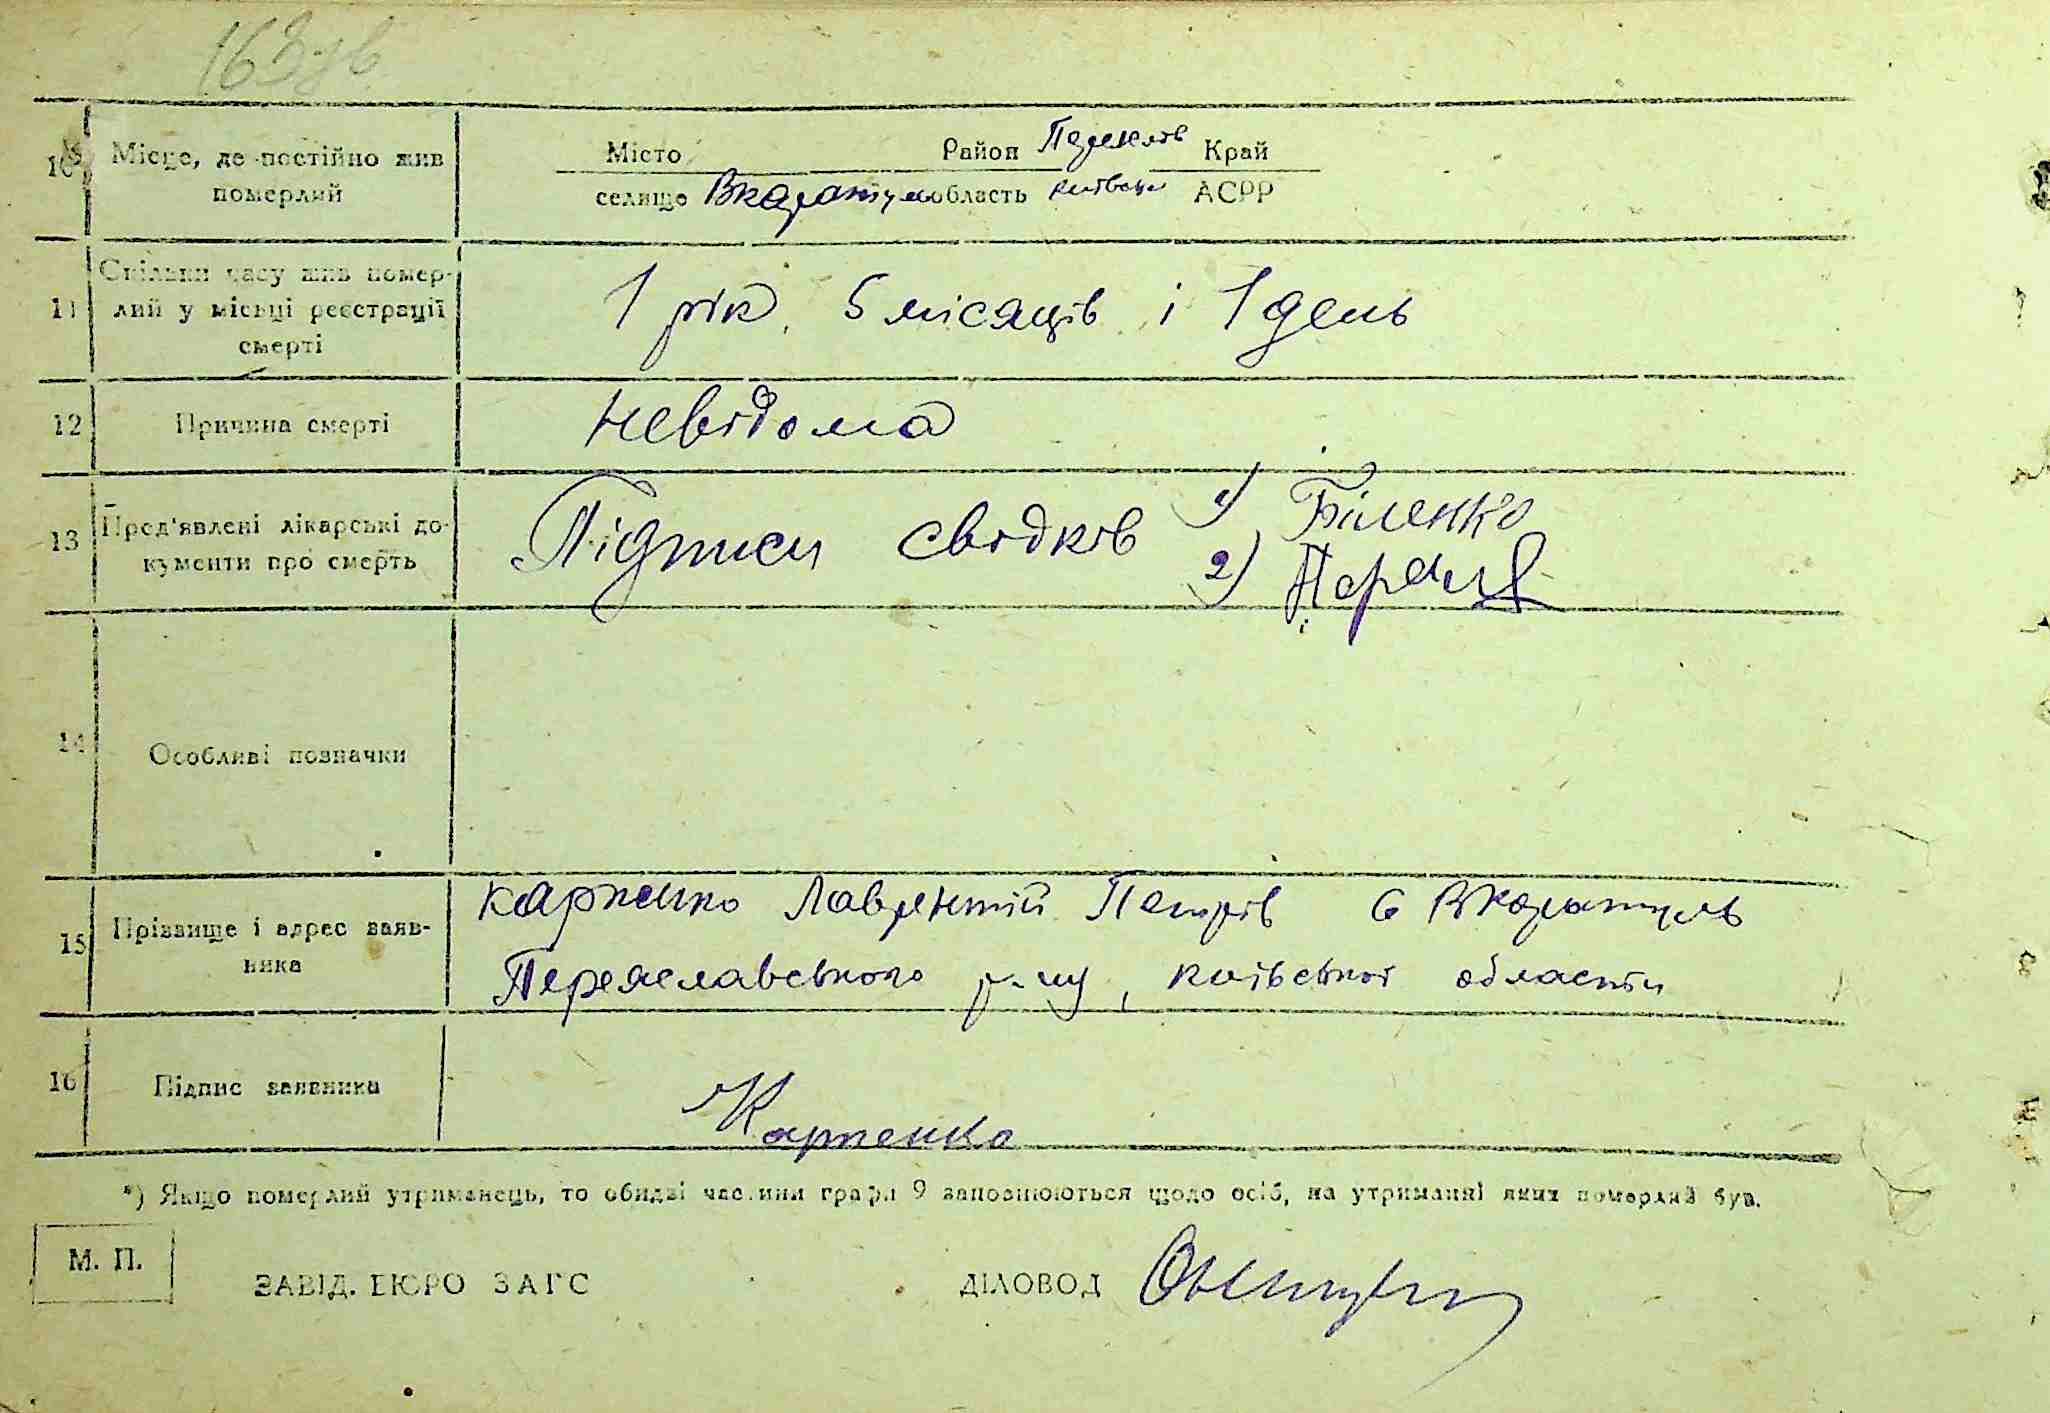 10 Місце, де постійно жив померлий
Місто Район Переяслів Край
селище Вкаратуль область Київська АСРР
11 Скільки часу жив померлий у місці реєстрації смерті
1 рік, 5 місяців і 1 день
12 Причина смерті невідома
13 Пред'явлені лікарські документи про смерть
Підписи свідків 1) Біленко
2)
14 Особливі позначки
15 Прізвище і адрес заявника
Карпенко Лаврентій Петрів с Вкаратуль
Переяславського р-ну, Київської області
16 Підпис заявника Карпенко
*) Якщо померлий утриманець, то обидві частини графи 9 заповнюються щодо осіб, на утриманні яких померлий був.
М. П.
ЗАВІД. БЮРО ЗАГС ДІЛОВОД